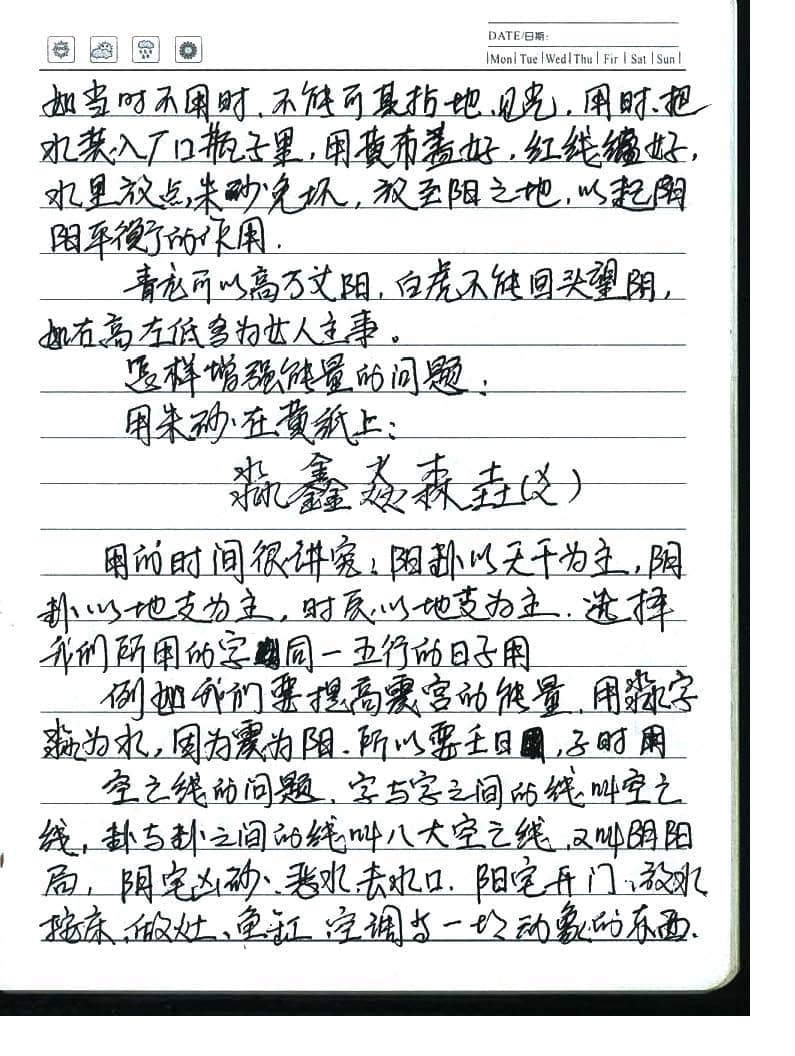 DATE/日期:
Mon Tue Wed Thu Fir Sat Sun
如当时不用时、不能可其指地、见光,用时、把
水装入广口瓶子里,用黄布盖好,红线缠好,
水里放点朱砂免坏,放至阳之地,以起阴
阳平衡的作用.
青龙可以高万丈阳,白虎不能回头望阴,
如右高左低多为女人主事。
怎样增强能量的问题:
用朱砂在黄纸上:
淼 鑫 焱 森 垚(义)
用的时间很讲究:阳卦以天干为主,阴
卦以地支为主,时辰以地支为主.选择
我们所用的字同一五行的日子用
例如我们要提高震宫的能量,用淼字
淼为水,因为震为阳.所以要壬日,子时用
空亡线的问题,字与字之间的线叫空亡
线,卦与卦之间的线叫八大空亡线,又叫阴阳
局,阴宅凶砂、恶水去水口.阳宅开门、放水
按床、做灶、鱼缸、空调与一切动象的东西.